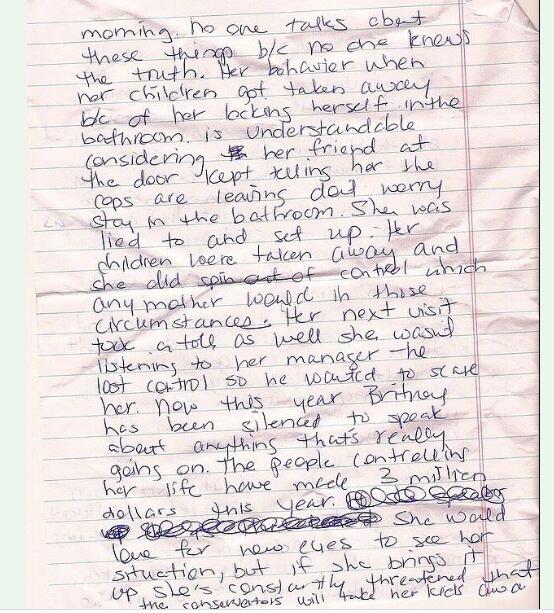 morning. no one talks about
these things b/c no one knows
the truth. Her behavior when
her children got taken away
b/c of her locking herself in the
bathroom is understandable
considering her friend at
the door kept telling her the
cops are leaving dont worry
stay in the bathroom. She was
lied to and set up. Her
children were taken away and
she did spin out of control which
any mother would in those
circumstances. Her next visit
took a toll as well she wasnt
listening to her manager - he
lost control so he wanted to scare
her. Now this year Britney
has been silenced to speak
about anything thats really
going on. The people controlling
her life have made 3 million
dollars this year.
She would
love for new eyes to see her
situation, but if she brings it
up she's constantly threatened that
the conservators will take her kids away